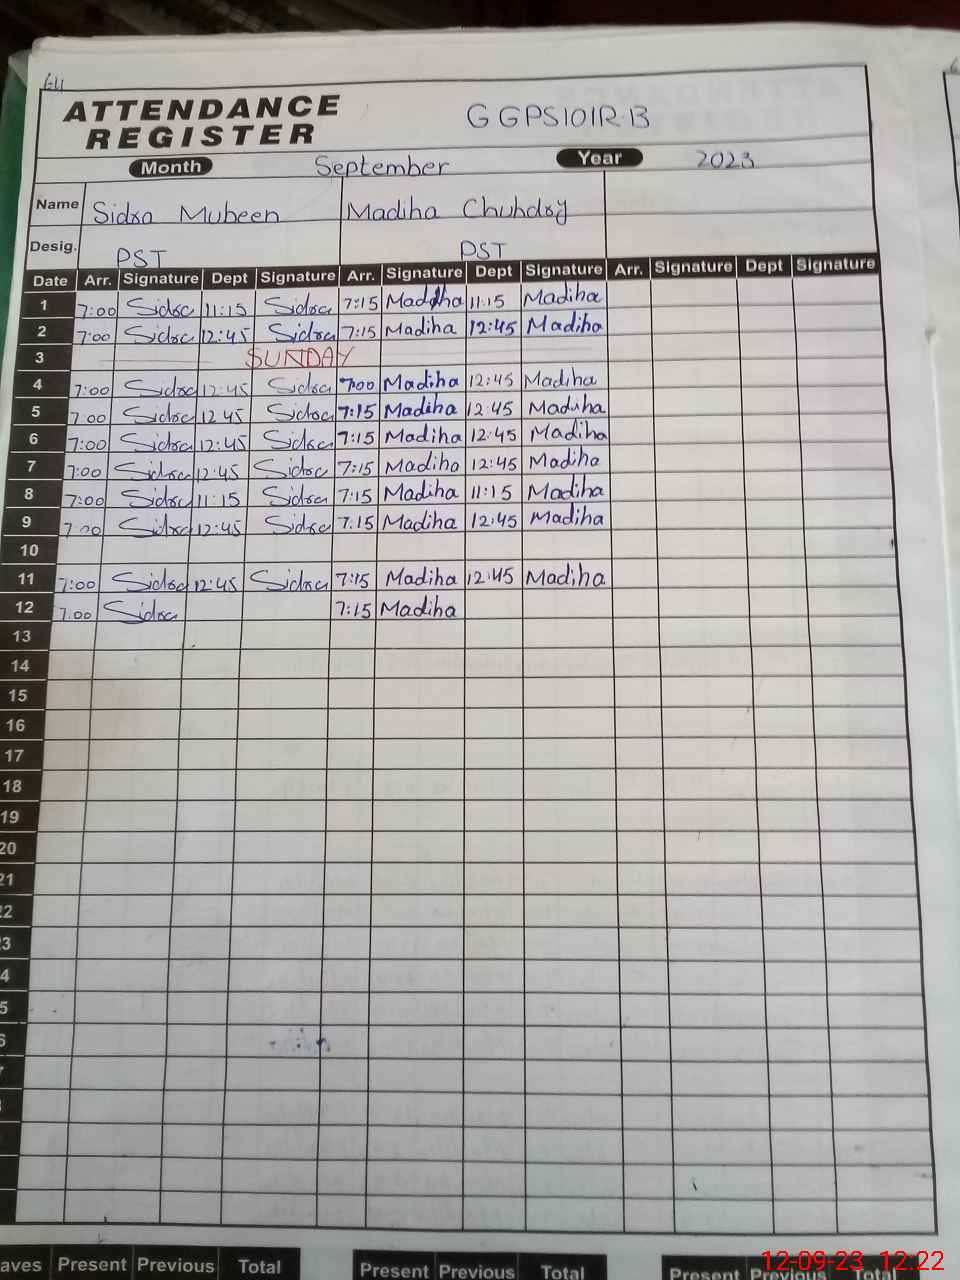 ATTENDANCE
REGISTER
GGPS101R-B
Month September Year 2023
Name Sidra Mubeen Madiha Chuhdry
Desig. PST PST
Date Arr. Signature Dept Signature Arr. Signature Dept Signature Arr. Signature Dept Signature
1 7:00 Sidra 11:15 Sidra 7:15 Madiha 11:15 Madiha
2 7:00 Sidra 12:45 Sidra 7:15 Madiha 12:45 Madiha
3 SUNDAY
4 7:00 Sidra 12:45 Sidra 7:00 Madiha 12:45 Madiha
5 7:00 Sidra 12:45 Sidra 7:15 Madiha 12:45 Madiha
6 7:00 Sidra 12:45 Sidra 7:15 Madiha 12:45 Madiha
7 7:00 Sidra 12:45 Sidra 7:15 Madiha 12:45 Madiha
8 7:00 Sidra 11:15 Sidra 7:15 Madiha 11:15 Madiha
9 7:00 Sidra 12:45 Sidra 7:15 Madiha 12:45 Madiha
10
11 7:00 Sidra 12:45 Sidra 7:15 Madiha 12:45 Madiha
12 7:00 Sidra 7:15 Madiha
13
14
15
16
17
18
19
20
21
22
23
4
5
6
aves Present Previous Total Present Previous Total Present Previous Total
12-09-23 12:22